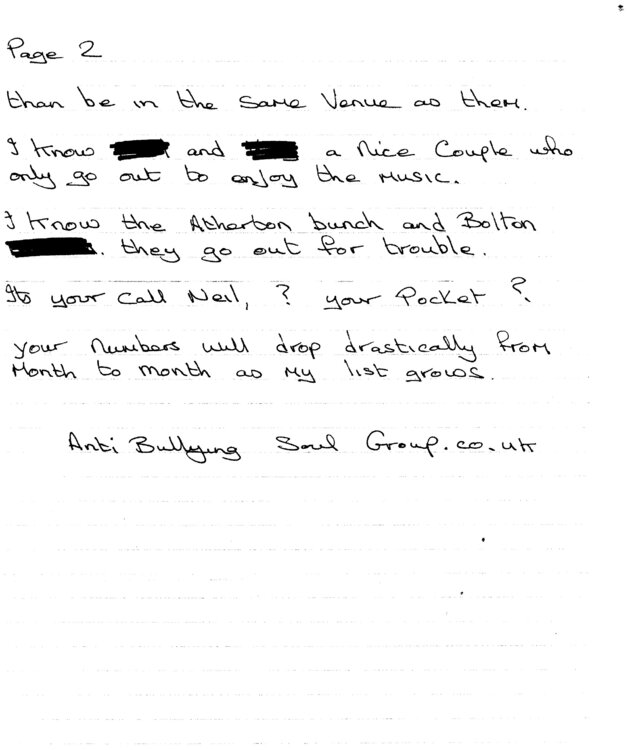 Page 2
than be in the same venue as them.
I know and a nice couple who
only go out to enjoy the music.
I know the Atherton bunch and Bolton
. they go out for trouble.
Its your call Neil, ? your Pocket ?
your numbers will drop drastically from
month to month as my list grows.
Anti Bullying Soul Group.co.uk